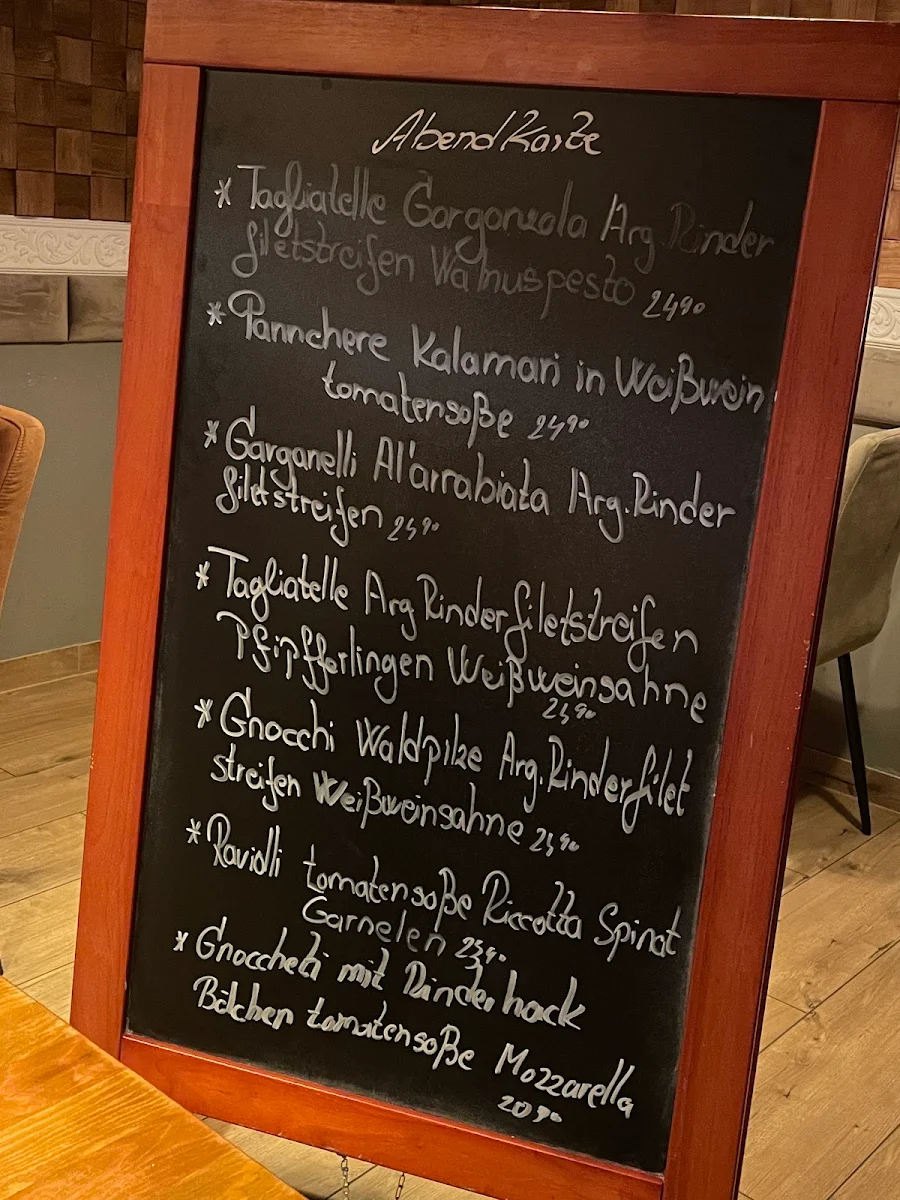 Abendkarte
* Tagliatelle Gorgonzola Arg. Rinder
filetstreifen Walnuspesto 24⁹⁰
* Pannchere Kalamari in Weißwein
tomatensoße 24⁹⁰
* Garganelli Al'arrabiata Arg. Rinder
filetstreifen 24⁹⁰
* Tagliatelle Arg Rinderfiletstreifen
Pfipfferlingen Weißweinsahne
24⁹⁰
* Gnocchi Waldpilze Arg. Rinderfilet
streifen Weißweinsahne 24⁹⁰
* Raviolli tomatensoße Riccotta Spinat
Garnelen 23⁹⁰
* Gnoccheti mit Rinderhack
Bälchen tomatensoße Mozzarella
20⁹⁰